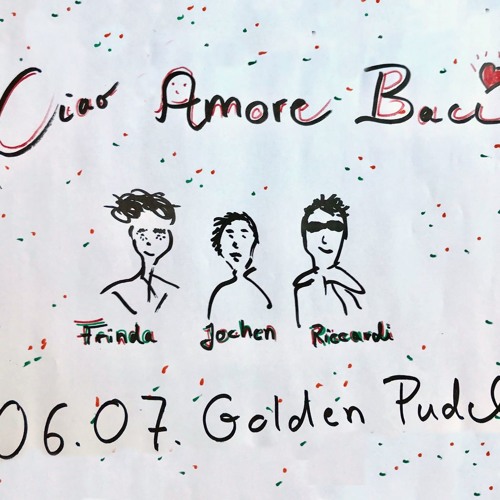 Ciao Amore Baci
Frinda Jochen Riccardi
06.07. Golden Pudel